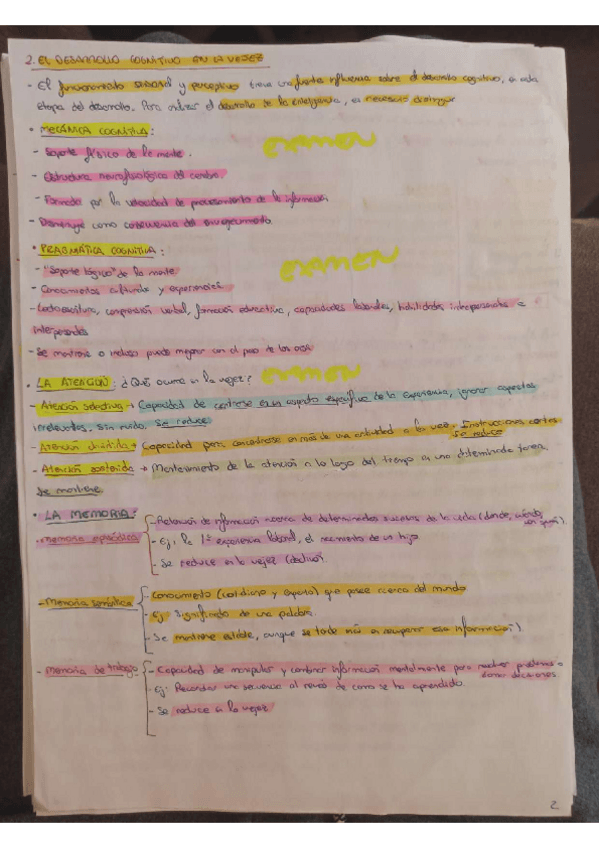 2. EL DESARROLLO COGNITIVO EN LA VEJEZ
- El funcionamiento sensorial y perceptivo tiene una fuerte influencia sobre el desarrollo cognitivo, en esta
etapa del desarrollo. Para analizar el desarrollo de la inteligencia, es necesario distinguir
• MECÁNICA COGNITIVA:
EXAMEN
- Soporte físico de la mente.
- Estructura neurofisiológica del cerebro.
- Formada por la velocidad de procesamiento de la información
- Disminuye como consecuencia del envejecimiento
• PRAGMÁTICA COGNITIVA:
EXAMEN
- "Soporte lógico" de la mente
- Conocimientos culturales y experiencias
- Lectoescritura, comprensión verbal, formación educativa, capacidades laborales, habilidades intrapersonales e
interpersonales
- Se mantiene o incluso puede mejorar con el paso de los años
• LA ATENCIÓN: ¿Qué ocurre en la vejez?
EXAMEN
- Atención selectiva → Capacidad de centrarse en un aspecto específico de la experiencia, ignorar aspectos
irrelevantes. Sin ruido. Se reduce
- Atención dividida → Capacidad para concentrarse en más de una actividad a la vez. Instrucciones cortas
Se reduce
- Atención sostenida → Mantenimiento de la atención a lo largo del tiempo en una determinada tarea.
Se mantiene.
• LA MEMORIA:
- Memoria episódica
- Retención de información acerca de determinados sucesos de la vida (donde, cuándo,
- Ej: la 1ª experiencia laboral, el nacimiento de un hijo
- Se reduce en la vejez (declive).
- Memoria semántica
- Conocimiento (cotidiano y experto) que posee acerca del mundo
- Ej: Significado de una palabra.
- Se mantiene estable, aunque se tarde más en recuperar esa información)
- Memoria de trabajo
- Capacidad de manipular y combinar información mentalmente para resolver problemas o
tomar decisiones
- Ej: Recordar una secuencia al revés de como se ha aprendido
- Se reduce en la vejez
2